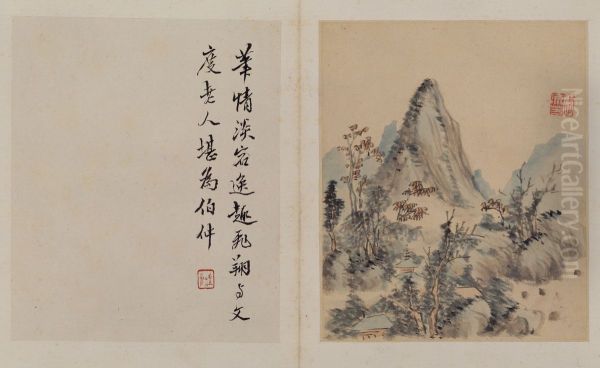 筆情淡宕逸趣飛翔与文
度老人堪為伯仲
NiceArtGallery.com